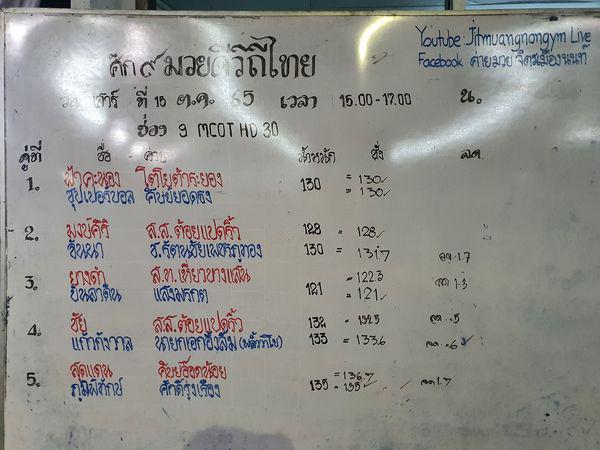 Youtube : Jitmuangnongym Live
Facebook ค่ายมวย จิตรเมืองนนท์
ศึก ๙ มวยดีวิถีไทย
วัน เสาร์ ที่ 15 ต.ค. 65 เวลา 15.00-17.00 น.
ช่อง 9 MCOT HD 30
คู่ที่ ชื่อ ค่าย น้ำหนัก ชั่ง ลด
1. ฟ้าคะนอง โตโยต้าระยอง 130 = 130
ซุปเปอร์บอล ศิษย์ยอดธง = 130
2. มงปศิริ ส.ส.ต้อยแปดริ้ว 128 = 128
ขันนา ช.รัตนชัยเพชรภูทอง 130 = 131.7 ลด 1.7
3. ยางดำ ส.ท.เหี่ยวบางแสน 121 = 122.3 ลด 1.3
บินลาดิน แสงมรกต = 121
4. ชัย ส.ส.ต้อยแปดริ้ว 132 - 132.5 ลด .5
แก้วกังวาล นายกเอกอึ่งลิ่ม 133 = 133.6 ลด .6
5. สุดแดน ศิษย์อ๊อดน้อย 135 = 136.7 ลด 1.7
ภูมิพิทักษ์ ศักดิ์รุ่งเรือง = 135